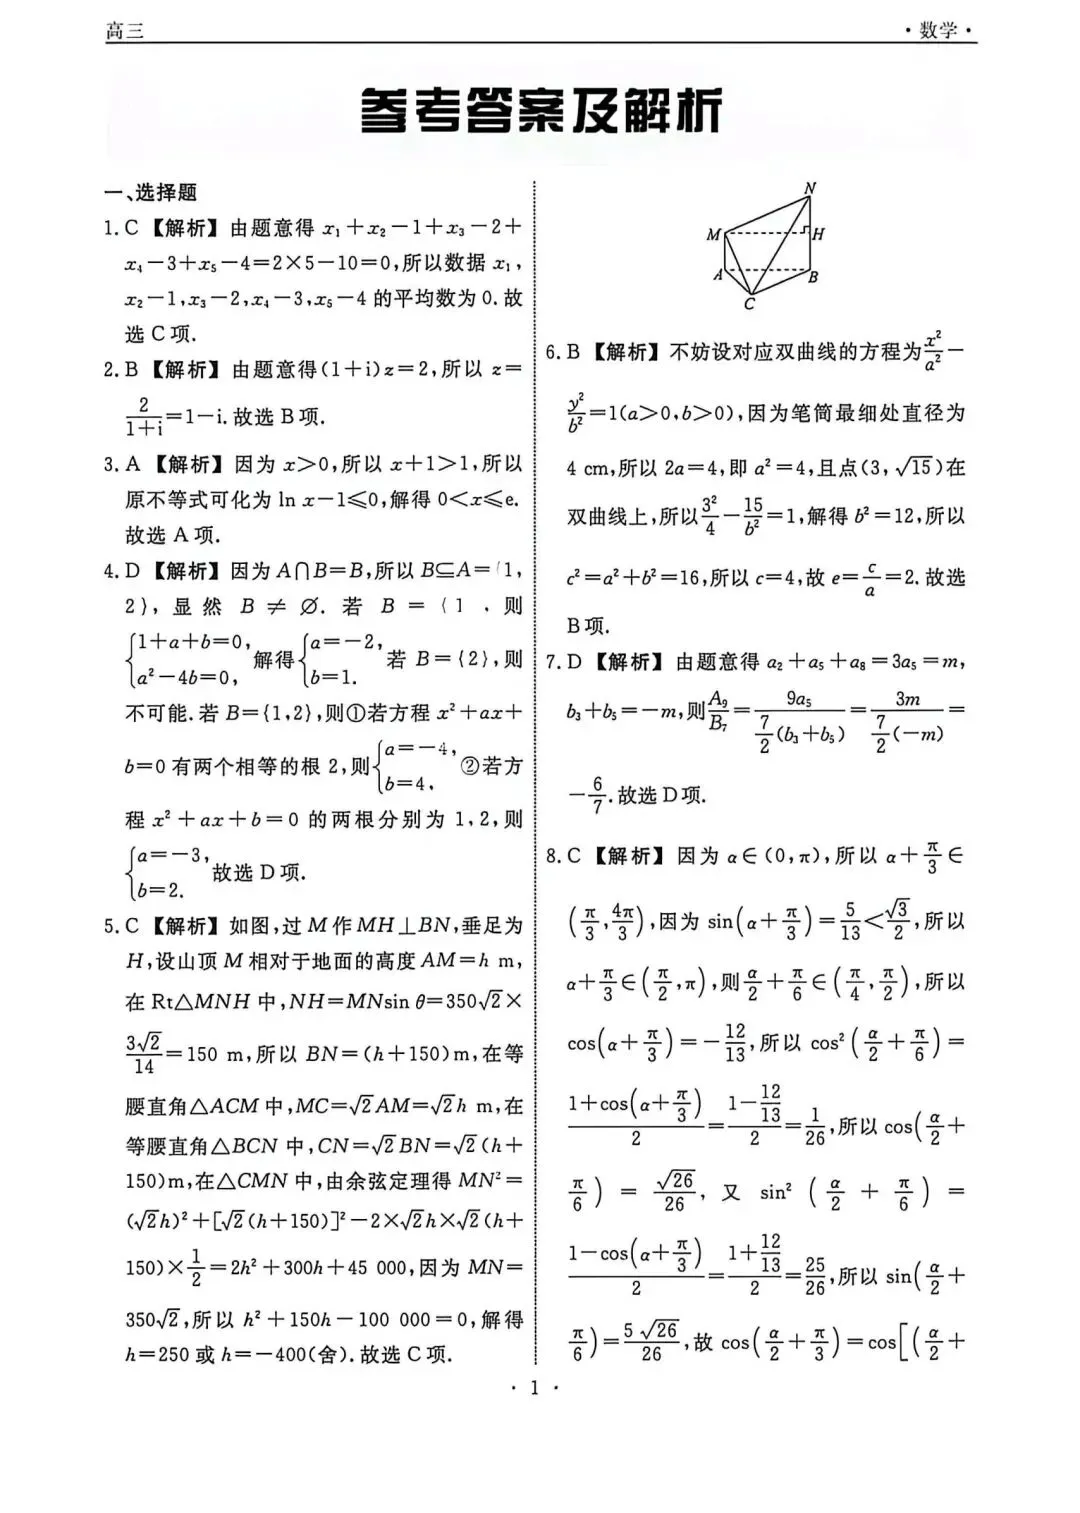 高三
·数学·
参考答案及解析
一、选择题
1. C 【解析】由题意得 x₁+x₂-1+x₃-2+
x₄-3+x₅-4=2×5-10=0,所以数据 x₁,
x₂-1,x₃-2,x₄-3,x₅-4 的平均数为 0. 故
选 C 项.
2. B 【解析】由题意得(1+i)z=2,所以 z=
2/(1+i)=1-i. 故选 B 项.
3. A 【解析】因为 x>0,所以 x+1>1,所以
原不等式可化为 ln x-1≤0,解得 0<x≤e.
故选 A 项.
4. D 【解析】因为 A∩B=B,所以 B⊆A={1,
2}, 显然 B≠∅. 若 B={1 , 则
{1+a+b=0, a²-4b=0, 解得{a=-2, b=1. 若 B={2},则
不可能. 若 B={1,2},则①若方程 x²+ax+
b=0 有两个相等的根 2,则{a=-4, b=4, ②若方
程 x²+ax+b=0 的两根分别为 1,2,则
{a=-3, b=2. 故选 D 项.
5. C 【解析】如图,过 M 作 MH⊥BN,垂足为
H,设山顶 M 相对于地面的高度 AM=h m,
在 Rt△MNH 中,NH=MNsin θ=350√2×
3√2/14=150 m,所以 BN=(h+150)m,在等
腰直角△ACM 中,MC=√2AM=√2h m,在
等腰直角△BCN 中,CN=√2BN=√2(h+
150)m,在△CMN 中,由余弦定理得 MN²=
(√2h)²+[√2(h+150)]²-2×√2h×√2(h+
150)×1/2=2h²+300h+45 000,因为 MN=
350√2,所以 h²+150h-100 000=0,解得
h=250 或 h=-400(舍). 故选 C 项.
N
M
H
A
B
C
6. B 【解析】不妨设对应双曲线的方程为x²/a²-
y²/b²=1(a>0,b>0),因为笔筒最细处直径为
4 cm,所以 2a=4,即 a²=4,且点(3,√15)在
双曲线上,所以3²/4-15/b²=1,解得 b²=12,所以
c²=a²+b²=16,所以 c=4,故 e=c/a=2. 故选
B 项.
7. D 【解析】由题意得 a₂+a₅+a₈=3a₅=m,
b₃+b₅=-m,则A₉/B₇=9a₅/(7/2(b₃+b₅))=3m/(7/2(-m))=
-6/7. 故选 D 项.
8. C 【解析】因为 α∈(0,π),所以 α+π/3∈
(π/3,4π/3),因为 sin(α+π/3)=5/13<√3/2,所以
α+π/3∈(π/2,π),则α/2+π/6∈(π/4,π/2),所以
cos(α+π/3)=-12/13,所以 cos²(α/2+π/6)=
(1+cos(α+π/3))/2=(1-12/13)/2=1/26,所以 cos(α/2+
π/6)=√26/26, 又 sin²(α/2+π/6)=
(1-cos(α+π/3))/2=(1+12/13)/2=25/26,所以 sin(α/2+
π/6)=5√26/26,故 cos(α/2+π/3)=cos[(α/2+
· 1 ·